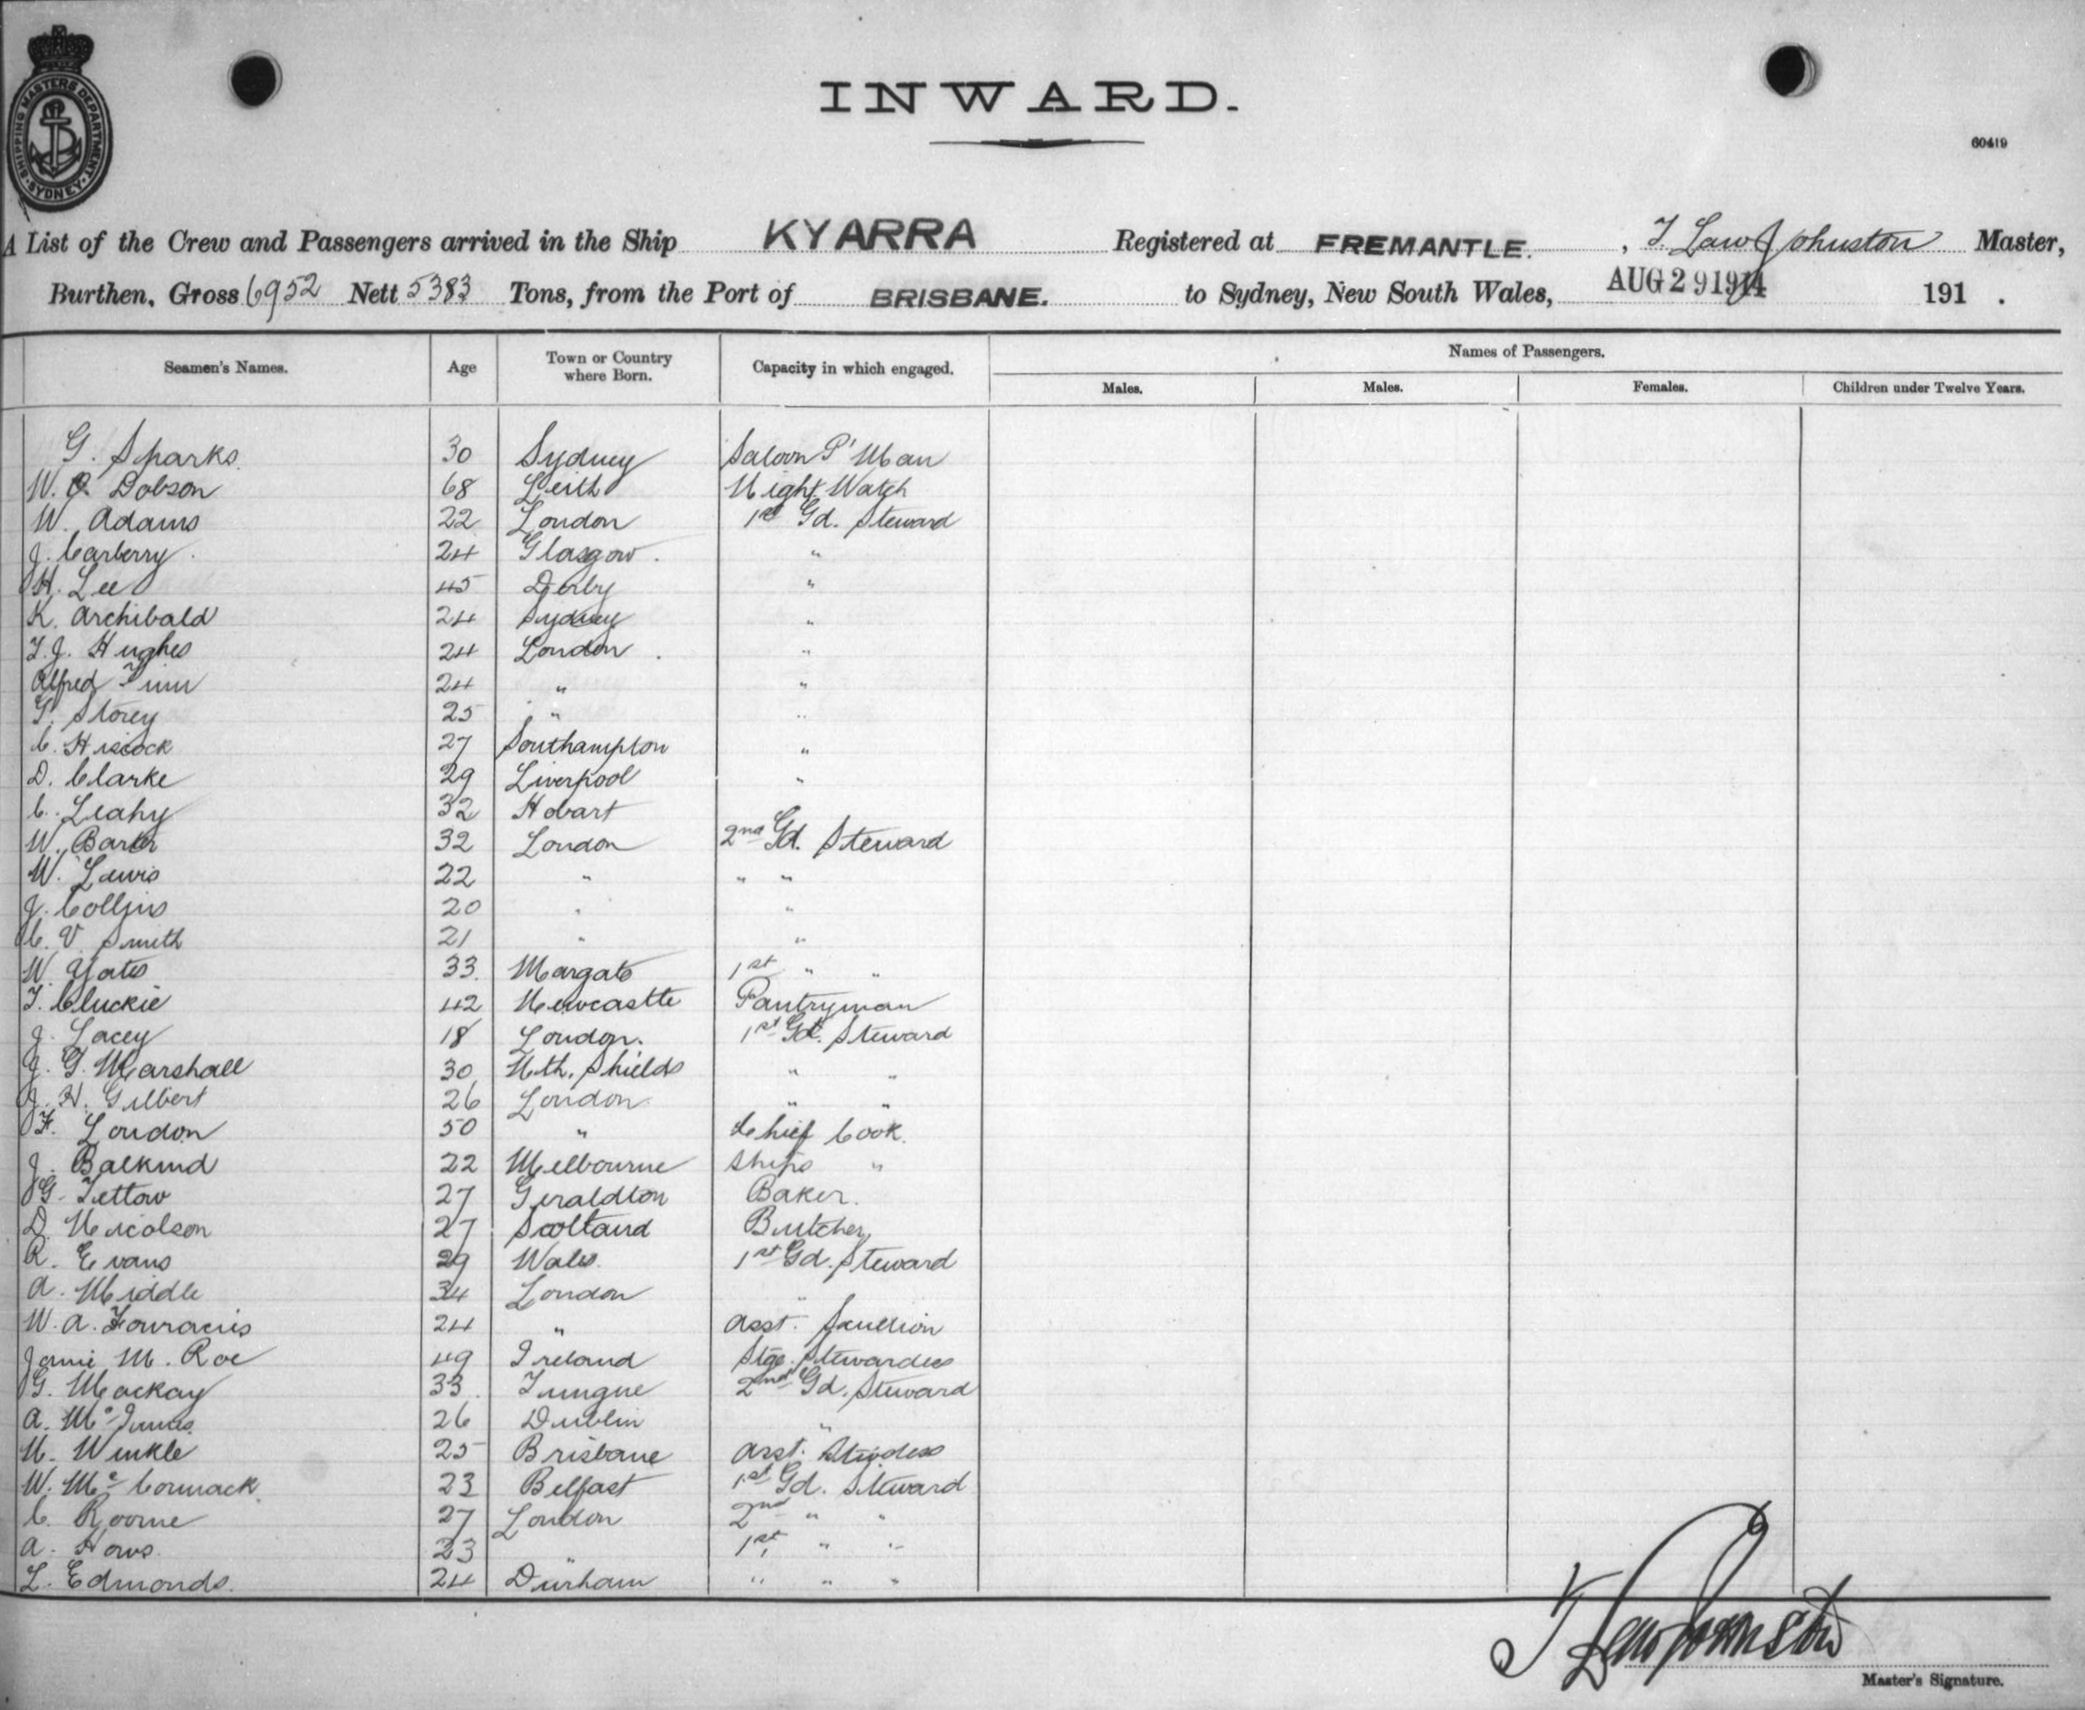 SHIPPING MASTERS DEPARTMENT · SYDNEY ·
INWARD.
60419
A List of the Crew and Passengers arrived in the Ship KYARRA Registered at FREMANTLE. , T. Law Johnston Master,
Burthen, Gross 6952 Nett 5383 Tons, from the Port of BRISBANE. to Sydney, New South Wales, AUG 29 1914 191 .
Seamen's Names. Age Town or Country where Born. Capacity in which engaged. Names of Passengers.
Males. Males. Females. Children under Twelve Years.
G. Sparks. 30 Sydney Saloon P' Man
W. Dobson 68 Leith Night Watch
W. Adams 22 London 1st Gd. Steward
J. Carberry. 24 Glasgow. "
H. Lee 45 Derby "
K. Archibald 24 Sydney "
T. J. Hughes 24 London. "
Alfred Finn 24 " "
G. Storey 25 " "
C. Hiscock 27 Southampton "
D. Clarke 29 Liverpool "
C. Leahy 32 Hobart
W. Barker 32 London 2nd Gd. Steward
W. Lewis 22 " " "
J. Collins 20 " "
C. V. Smith 21 " "
W. Yates 33. Margate 1st " "
T. Cluckie 42 Newcastle Pantryman
J. Lacey 18 London. 1st Gd. Steward
J. G. Marshall 30 Nth. Shields " "
J. H. Gilbert 26 London " "
F. London 50 " Chief Cook.
J. Balkind 22 Melbourne Ships "
G. Tettow 27 Geraldton Baker.
D. Nicolson 27 Scotland Butcher
R. Evans 29 Wales. 1st Gd. Steward
A. Middle 34 London "
W. A. Fouracies 24 " Asst. Scullion
Janie M. Roe 49 Ireland Stge. Stewardess
G. Mackay 33 Tungue 2nd Gd. Steward
A. McInnes 26 Dublin "
N. Winkle 25 Brisbane Asst. Stwdess
W. McCormack. 23 Belfast 1st Gd. Steward
C. Roome 27 London 2nd " "
A. Hows. 23 " 1st " "
L. Edmonds. 24 Durham " " "
T Law Johnston
Master's Signature.